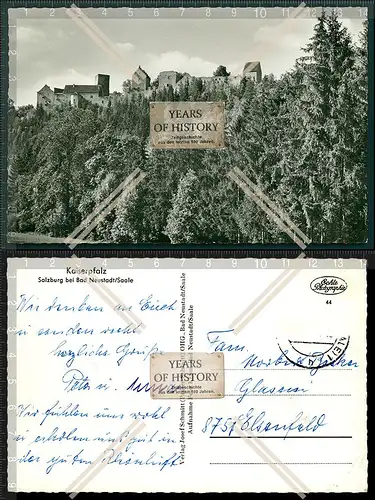 YEARS
OF HISTORY
Zeitgeschichte
aus den letzten 100 Jahren.
Kaiserpfalz
Salzburg bei Bad Neustadt/Saale
Echte
Photographie
44
Wir denken an Euch
u. senden recht
herzliche Grüße
Peter u.
Wir fühlen uns wohl
u. erholen uns gut in
der guten Rhönluft
Verlag Josef Schmitt
OHG., Bad Neustadt/Saale
Aufnahme
Neustadt/Saale
YEARS
OF HISTORY
Zeitgeschichte
aus den letzten 100 Jahren.
Fam.
Glasserei
8751 Elsenfeld